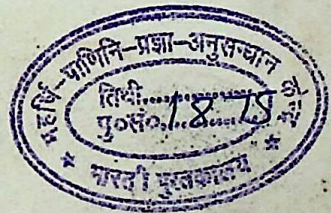 महर्षि-पाणिनि-प्रज्ञा-अनुसन्धान केन्द्र
तिथी..........
पु०सं०.1875
* भारती पुस्तकालय *